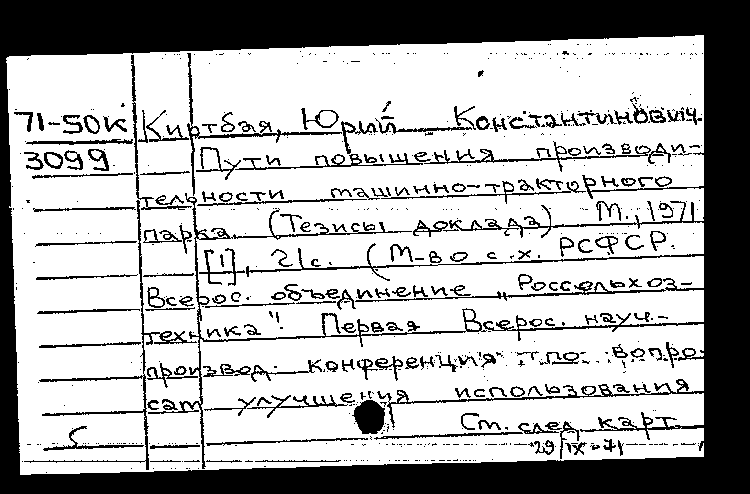 71-50к Киртбая, Юрий Константинович.
3099 Пути повышения производи-
тельности машинно-тракторного
парка. (Тезисы доклада) М., 1971.
[1], 21с. (М-во с.х. РСФСР.
Всерос. объединение „Россельхоз-
техника". Первая Всерос. науч.-
производ. конференция по вопро-
сам улучшения использования
См. след. карт.
29/IX-71